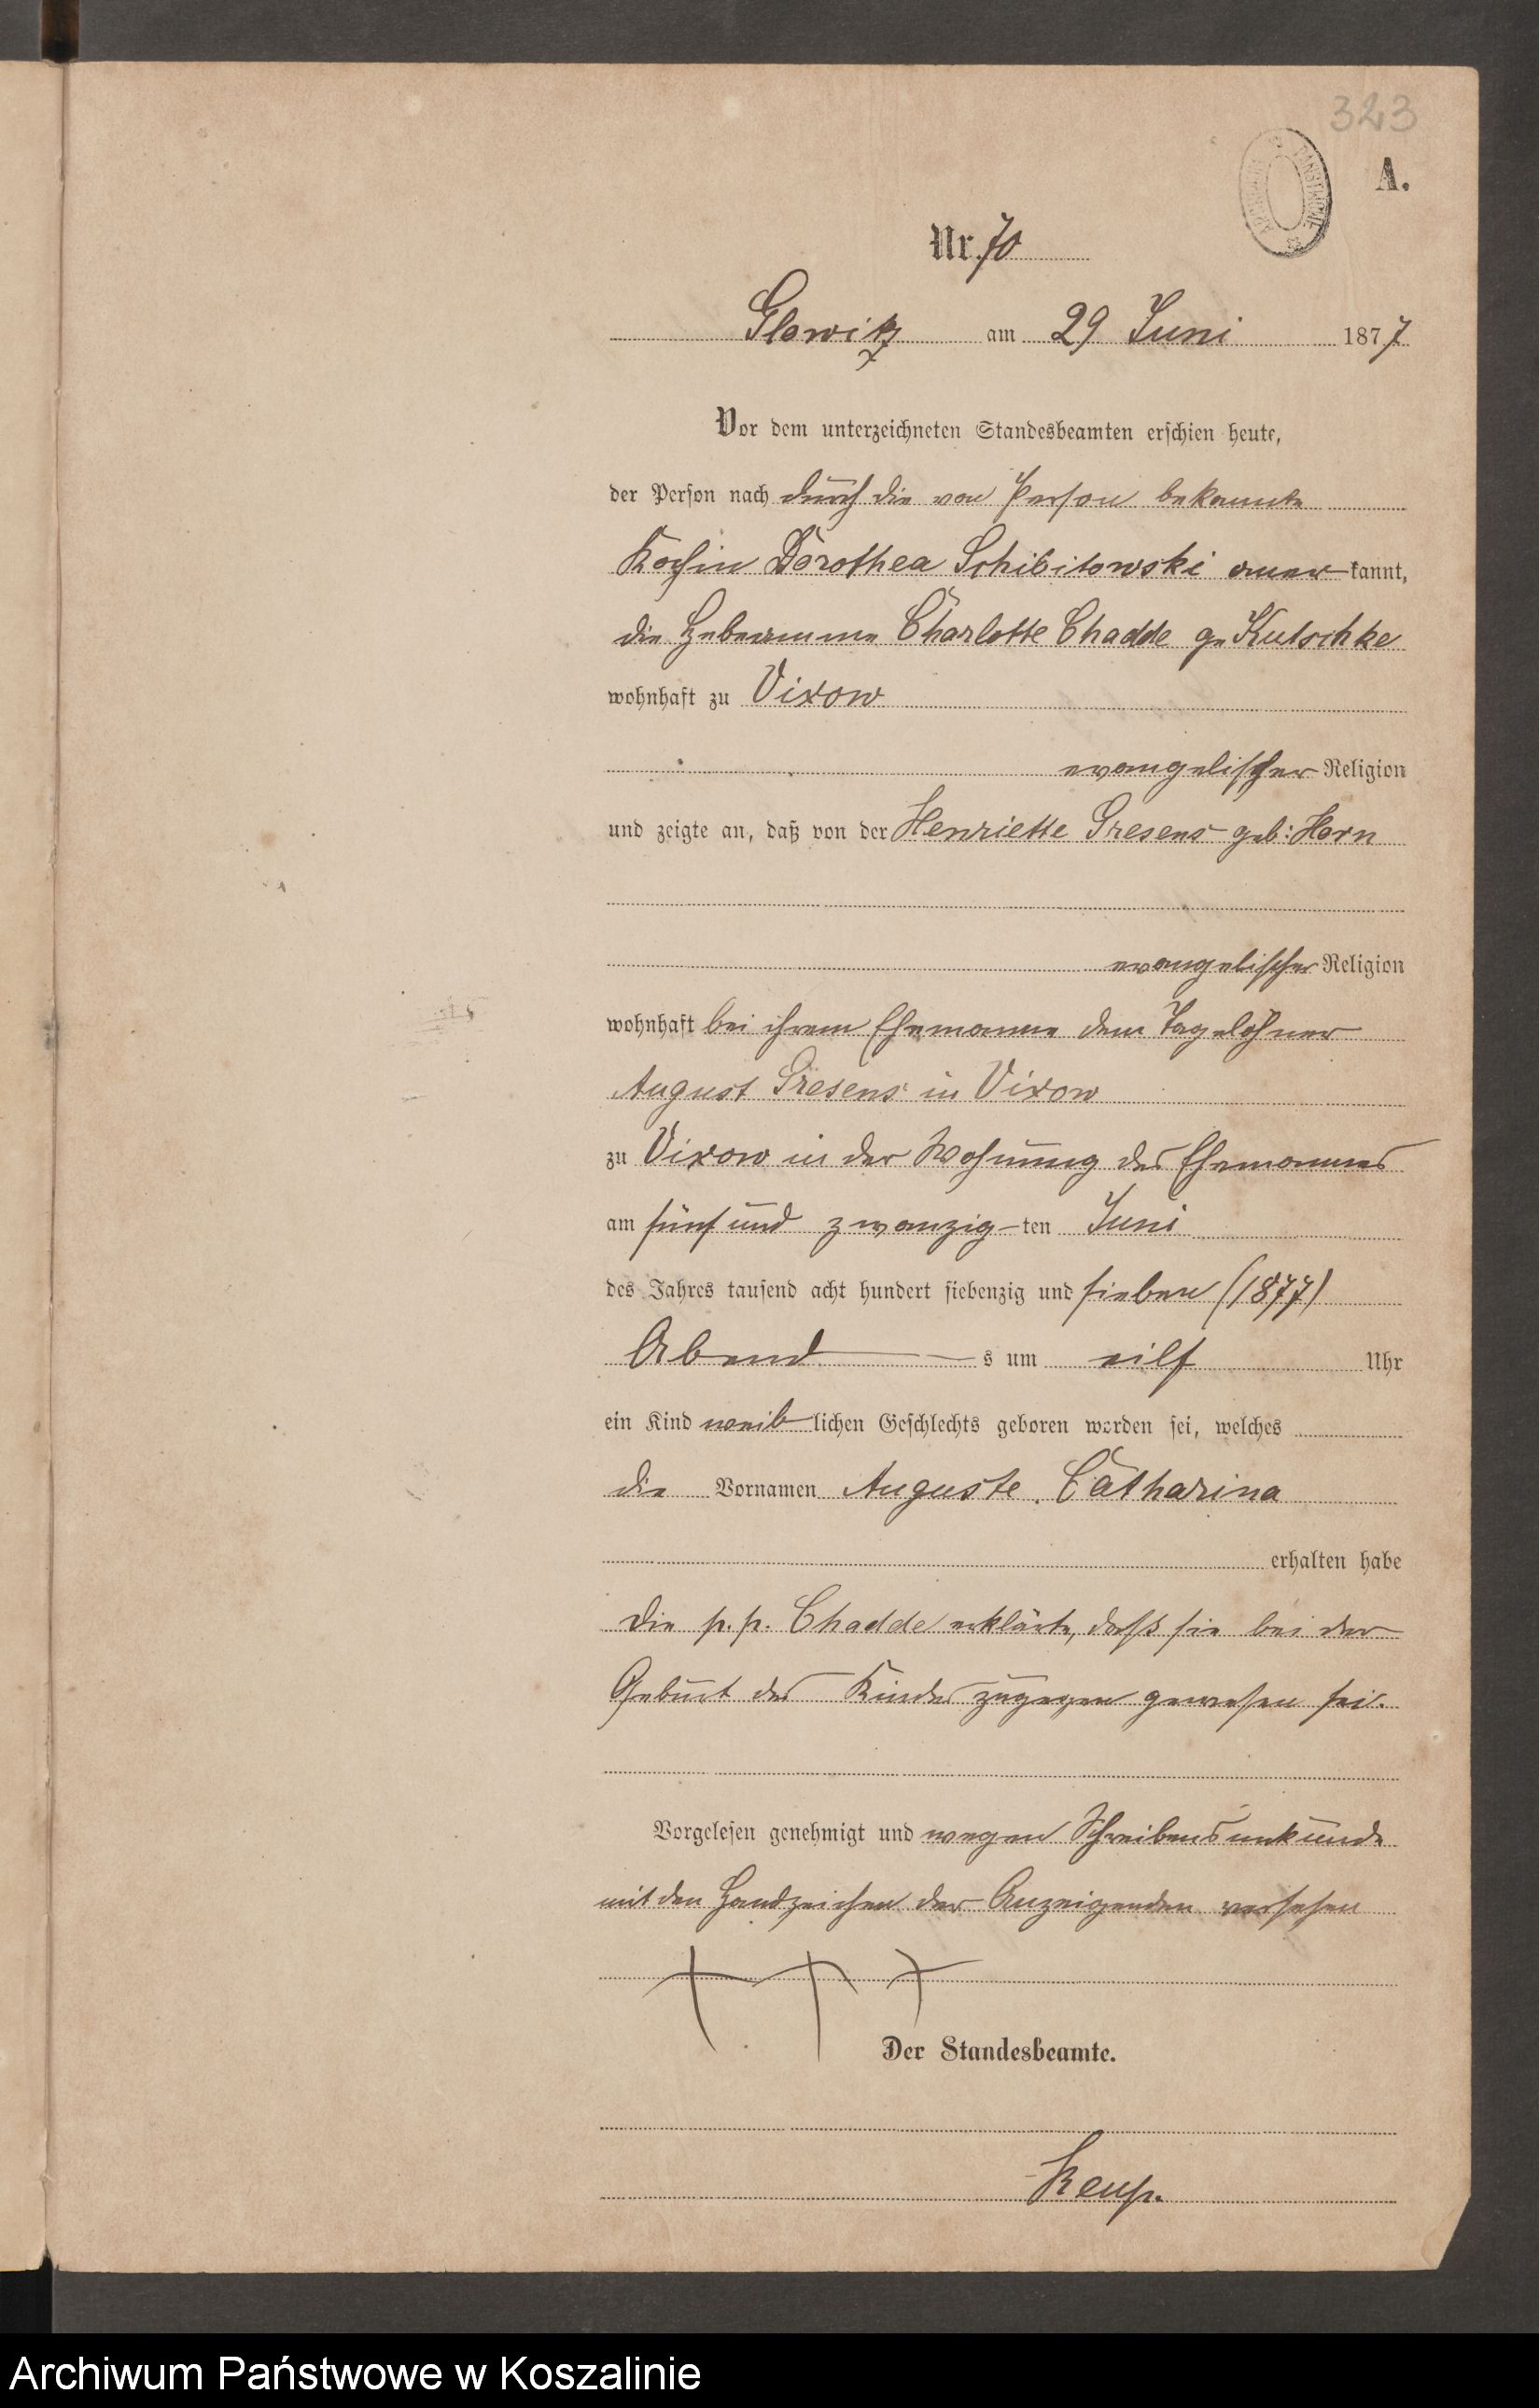 323
A.
Nr. 70
Glowitz am 29 Juni 1877
Vor dem unterzeichneten Standesbeamten erschien heute,
der Person nach durch die von Person bekannte
Köchin Dorothea Schibilowski anerkannt,
die Hebeamme Charlotte Chadde ge Kutschke
wohnhaft zu Vixow
evangelischer Religion
und zeigte an, daß von der Henriette Gresens geb: Horn
evangelischer Religion
wohnhaft bei ihrem Ehemanne dem Tagelöhner
August Gresens in Vixow
zu Vixow in der Wohnung des Ehemannes
am fünf und zwanzig-ten Juni
des Jahres tausend acht hundert siebenzig und sieben (1877)
Abend s um eilf Uhr
ein Kind weiblichen Geschlechts geboren worden sei, welches
die Vornamen Auguste Catharina
erhalten habe
Die p. p. Chadde erklärte, daß sie bei der
Geburt des Kindes zugegen gewesen sei.
Vorgelesen genehmigt und wegen Schreibensunkunde
mit den Handzeichen der Anzeigenden versehen
+ + +
Der Standesbeamte.
Keup.
Archiwum Państwowe w Koszalinie